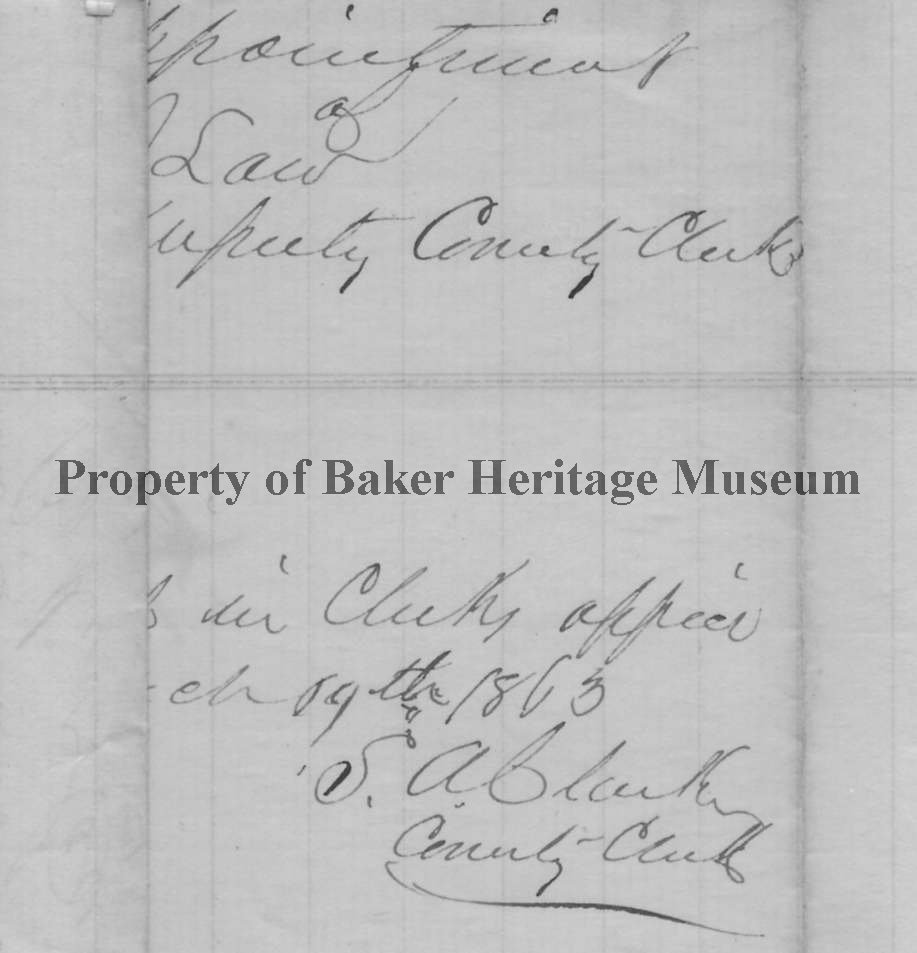 ppointment
of
Law
eputy County Clerk
Property of Baker Heritage Museum
in Clerks office
ch 19th 1863
S. A. Clarke
County Clerk